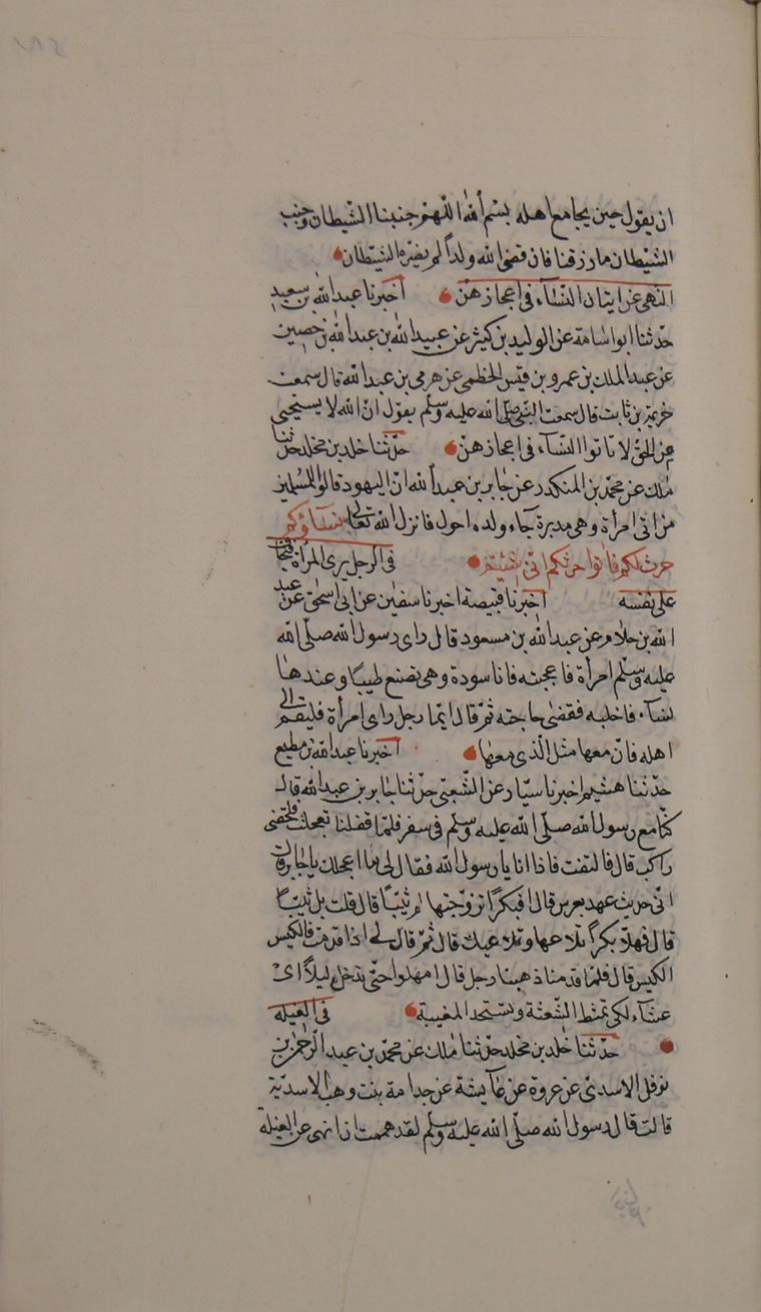 ان يقول حين يجامع اهله بسم الله اللهم جنبنا الشيطان وجنب
الشيطان ما رزقتنا فان قضى الله ولداً لم يضره الشيطان
النهى عن ايتان النساء فى اعجازهن اخبرنا عبد الله بن سعيد
حدثنا ابو اسامة عن الوليد بن كثير عن عبيد الله بن عبد الله بن حصين
عن عبد الملك بن عمرو بن قيس الخطمى عن هرمى بن عبد الله قال سمعت
خزيمة بن ثابت قال سمعت النبى صلى الله عليه وسلم يقول ان الله لا يستحيى
من الحق لا تاتوا النساء فى اعجازهن حدثنا خلد بن مخلد حدثنا
ملك عن محمد بن المنكدر عن جابر بن عبد الله ان اليهود قالوا للمسلمين
من اتى امرأة وهى مدبرة جاء ولده احول فانزل الله تعالى نساؤكم
حرث لكم فاتوا حرثكم انى شئتم فى الرجل يرى المرأة فيخاف
على نفسه اخبرنا قبيصة اخبرنا سفين عن ابى اسحق عن عبد
الله بن حلام عن عبد الله بن مسعود قال راى رسول الله صلى الله
عليه وسلم امرأة فاعجبته فاتا سودة وهى تصنع طيبًا وعندها
نساء فاخلينه فقضى حاجته ثم قال ايما رجل راى امرأة فليقم الى
اهله فان معها مثل الذى معها اخبرنا عبد الله بن مطيع
حدثنا هشيم اخبرنا سيار عن الشعبى حدثنا جابر بن عبد الله قال
كنا مع رسول الله صلى الله عليه وسلم فى سفر فلما قفلنا تعجلت فلحقنى
راكب قال فالتفت فاذا انا يا رسول الله فقال لى ما اعجلك يا جابر قال
انى حديث عهد بعرس قال افبكراً تزوجتها ام ثيبًا قال قلت بل ثيبًا
قال فهلا بكراً تلاعبها وتلاعبك قال ثم قال لى اذا قدمت فالكيس
الكيس قال فلما قدمنا ذهبنا رجل قال امهلوا حتى ندخل ليلاً اى
عشاء لكى تمتشط الشعثة وتستحد المغيبة فى الغيلة
حدثنا خلد بن مخلد حدثنا ملك عن محمد بن عبد الرحمن بن
نوفل الاسدى عن عروة عن عايشة عن جدامة بنت وهب الاسدية
قالت قال رسول الله صلى الله عليه وسلم لقد هممت ان انهى عن الغيلة